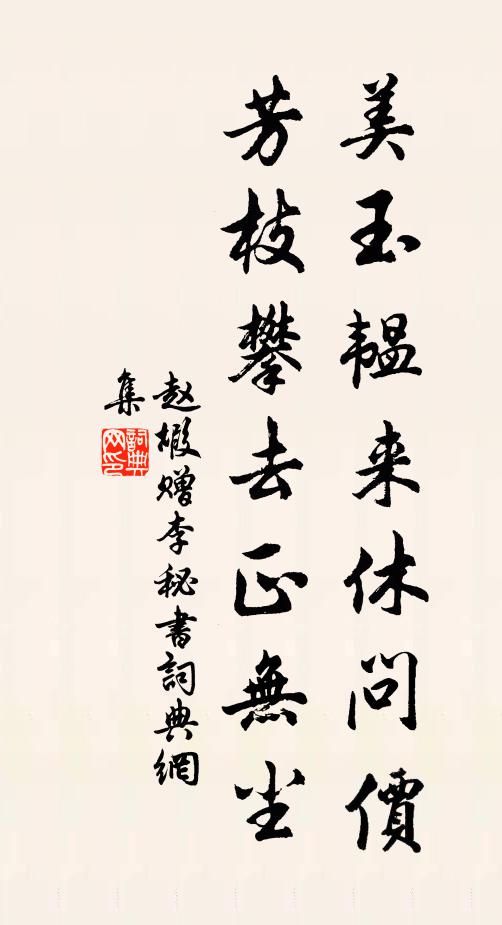 美玉韞来休問價
芳枝攀去正無尘
赵嘏赠李秘書詞典網
集
詞典
网印